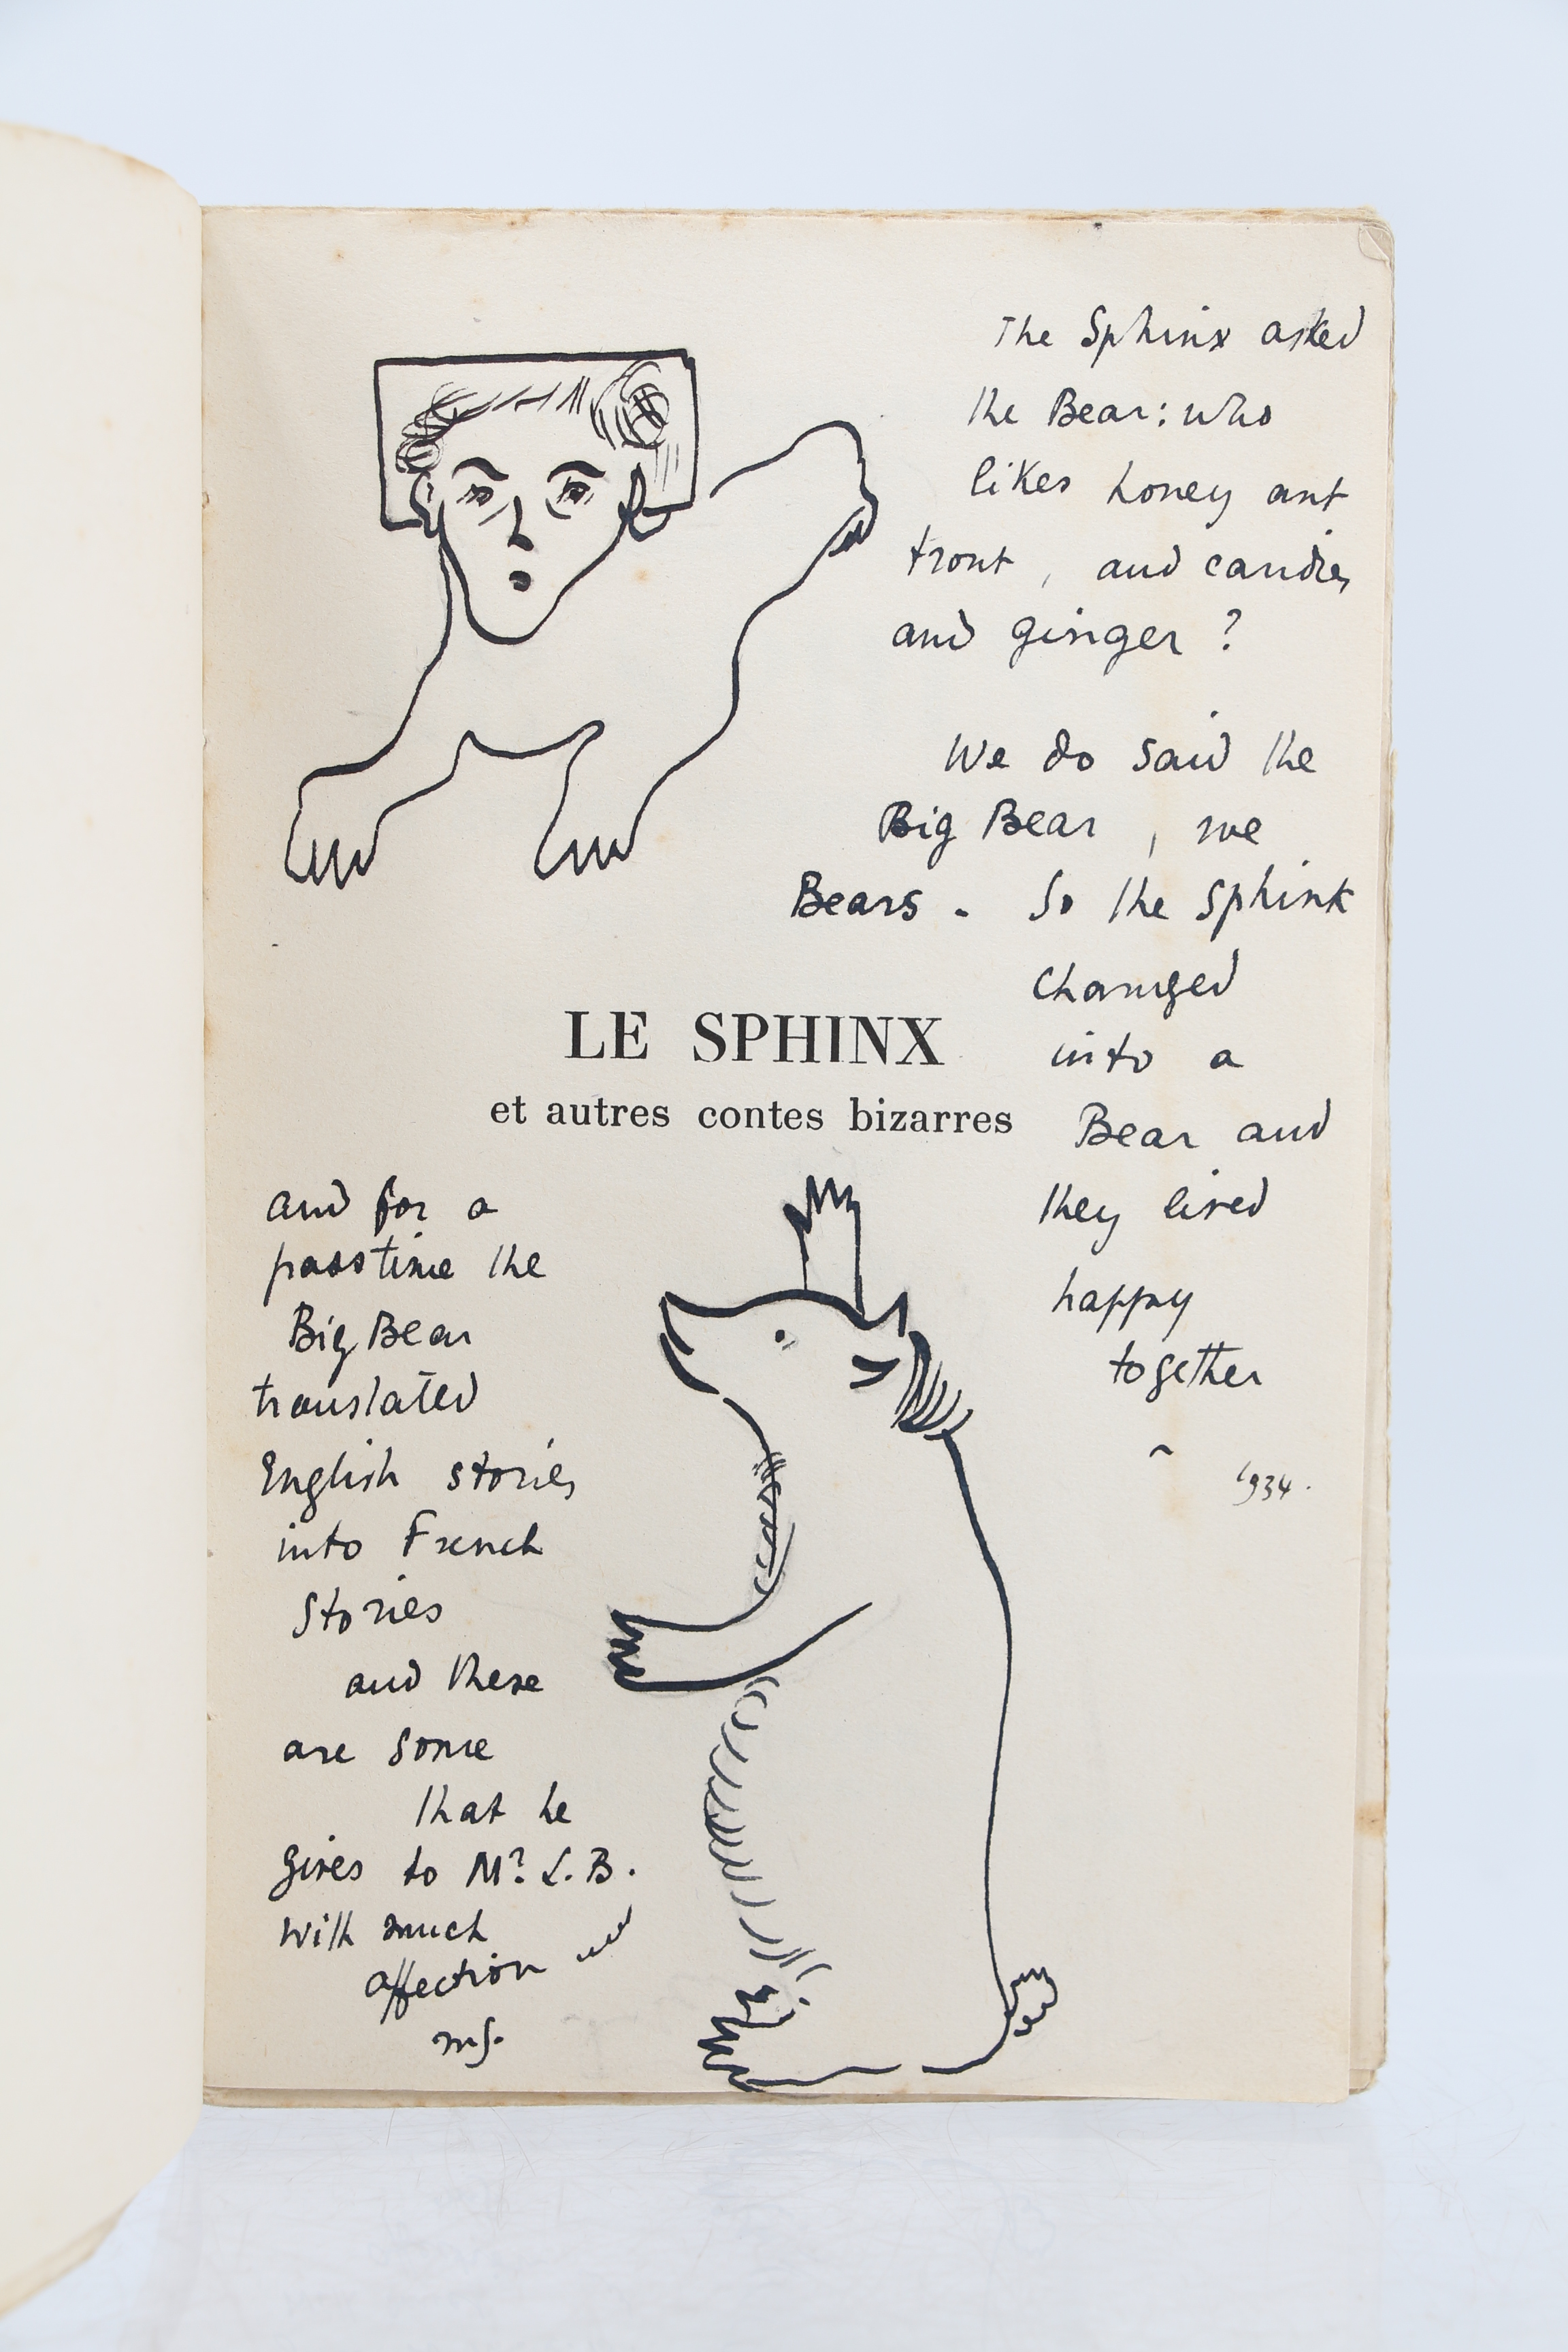 The Sphinx asked
the Bear: who
likes honey ant
trout, and candies
and ginger?
We do said the
Big Bear, we
Bears. So the Sphink
changed
into a
Bear and
they lived
happy
together
1934.
LE SPHINX
et autres contes bizarres
and for a
passtime the
Big Bear
translated
English stories
into French
Stories
and these
are some
that he
gives to Mr L.B.
with much
affection